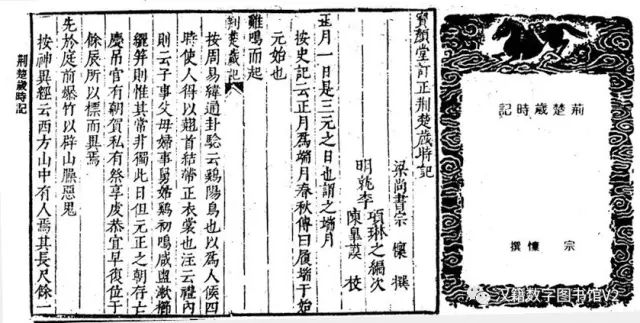 荊楚歲時記
宗懍撰
寶顏堂訂正荆楚歲時記
梁尚書宗 懍 撰
明乾李 項琳之編次
陳皐謨 校
正月一日是三元之日也謂之端月
按史記云正月爲端月春秋傳曰履端于始
元始也
雞鳴而起
荆楚歲記
按周易緯通卦驗云雞陽鳥也以爲人候四
時使人得以翹首結帶正衣裳也注云禮內
則云子事父母婦事舅姑雞初鳴咸盥漱櫛
縰笄則惟其常非獨此日但元正之朝存亡
慶吊官有朝賀私有祭享虔恭宜早復位于
餘辰所以標而異焉
先於庭前爆竹以辟山臊惡鬼
按神異經云西方山中有人焉其長尺餘一
荆楚歲時記
汉籍数字图书馆V2